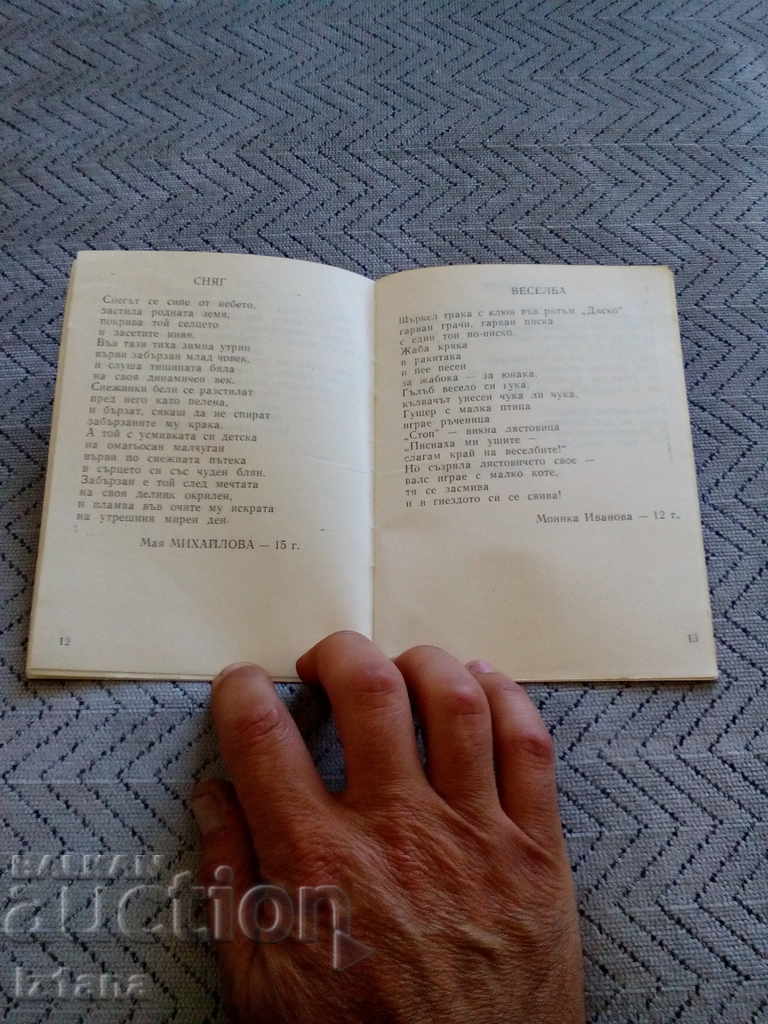 СНЯГ
Снегът се сипе от небето,
застила родната земя,
покрива той селцето
и засетите ниви.
Във тази тиха зимна утрин
върви забързан млад човек,
и слуша тишината бяла
на своя динамичен век.
Снежинки бели се разстилат
пред него като пелена,
и бързат, сякаш да не спират
забързаните му крака.
А той с усмивката си детска
на омагьосан малчуган
върви по снежната пътека
в сърцето си със чуден блян.
Забързан е той след мечтата
на своя делник окрилен,
и пламва във очите му искрата
на утрешния мирен ден.
Мая МИХАЙЛОВА — 15 г.
12
ВЕСЕЛБА
Щъркел трака с клюн във ритъм „Диско“
гарван грачи, гарван писка
с един тон по-ниско.
Жаба кряка
в ракитака
и пее песен
за жабока — за юнака.
Гълъб весело си гука,
кълвачът унесен чука ли чука,
Гущер с малка птица
играе ръченица
„Стоп“ — викна лястовица
„Писнаха ми ушите —
слагам край на веселбите!“
Но съзряла лястовичето свое —
валс играе с малко коте,
тя се засмива
и в гнездото си се свива!
Моника Иванова — 12 г.
13
BALKAN
auction
iz1ana